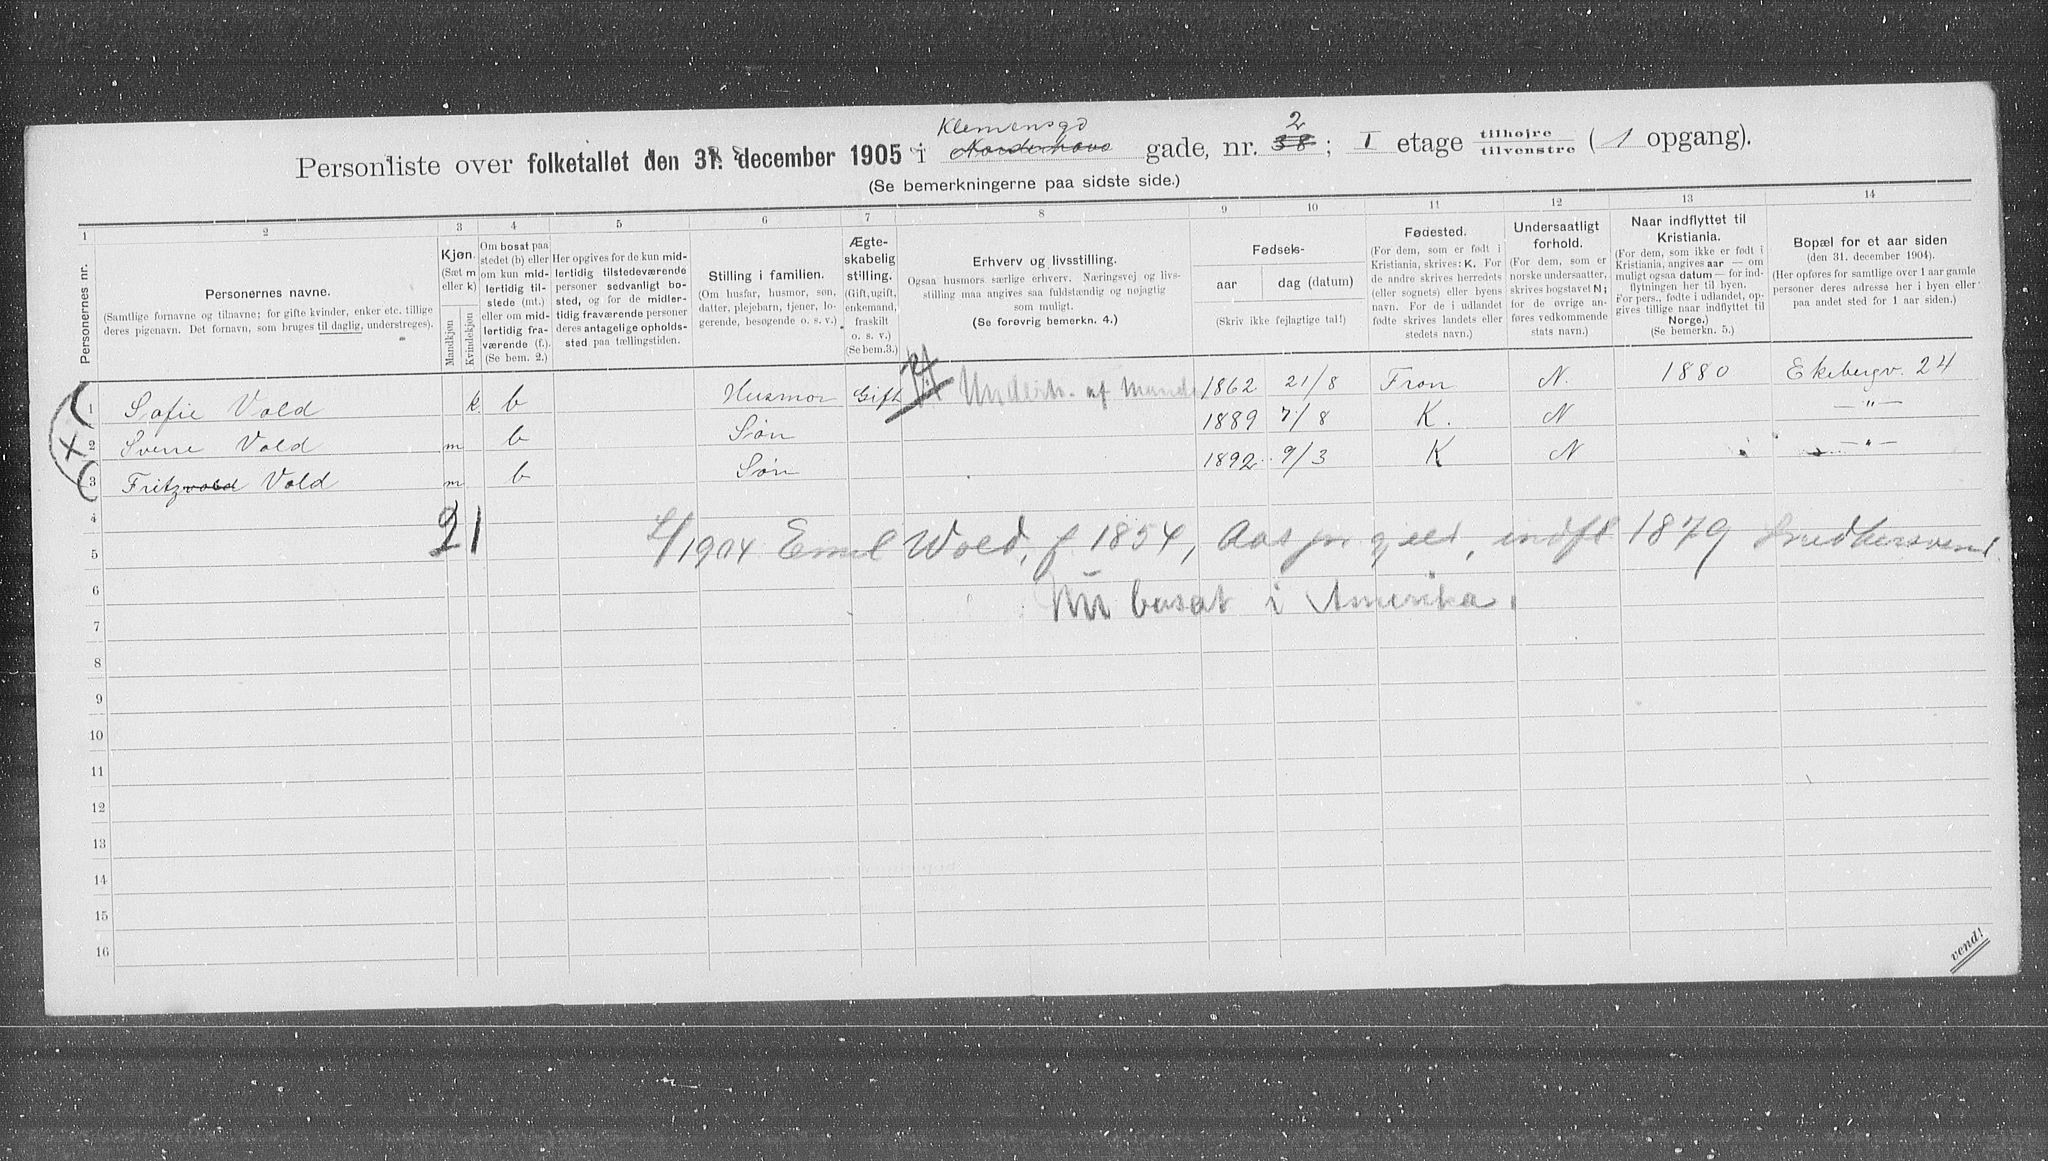 Klemensgd 2
Personliste over folketallet den 31. december 1905 i Norderhovs gade, nr. 38; I etage tilhøjre tilvenstre (1 opgang).
(Se bemerkningerne paa sidste side.)
1 2 3 4 5 6 7 8 9 10 11 12 13 14
Personernes nr.
Personernes navne.
(Samtlige fornavne og tilnavne; for gifte kvinder, enker etc. tillige
deres pigenavn. Det fornavn, som bruges til daglig, understreges).
Kjøn.
(Sæt m
eller k)
Mandkjøn
Kvindekjøn
Om bosat paa
stedet (b) eller
om kun mid-
lertidig til-
stede (mt.)
eller om mid-
lertidig fra-
værende (f.).
(Se bem. 2.)
Her opgives for de kun mid-
lertidig tilstedeværende
personer sedvanligt bo-
sted, og for de midler-
tidig fraværende personer
deres antagelige opholds-
sted paa tællingstiden.
Stilling i familien.
(Om husfar, husmor, søn,
datter, plejebarn, tjener, lo-
gerende, besøgende o. s. v.)
Ægte-
skabelig
stilling.
(Gift, ugift,
enkemand,
fraskilt
o. s. v.)
(Se bem.3.)
Erhverv og livsstilling.
Ogsaa husmors særlige erhverv. Næringsvej og livs-
stilling maa angives saa fuldstændig og nøjagtig
som muligt.
(Se forøvrig bemerkn. 4.)
Fødsels-
aar
dag (datum)
(Skriv ikke fejlagtige tal!)
Fødested.
(For dem, som er født i
Kristiania, skrives: K. For
de andre skrives herredets
(eller sognets) eller byens
navn. For de i udlandet
fødte skrives landets eller
stedets navn.)
Undersaatligt
forhold.
(For dem, som er
norske undersaatter,
skrives bogstavet N;
for de øvrige an-
føres vedkommende
stats navn.)
Naar indflyttet til
Kristiania.
(For dem, som ikke er født i
Kristiania, angives aar — om
muligt ogsaa datum — for ind-
flytningen her til byen.
For pers., fødte i udlandet, op-
gives tillige naar indflyttet til
Norge.)
(Se bemerkn. 5.)
Bopæl for et aar siden
(den 31. december 1904).
(Her opføres for samtlige over 1 aar gamle
personer deres adresse her i byen eller
paa andet sted for 1 aar siden.)
1 Sofie Vold k b Husmor Gift Underh. af Mand 1862 21/8 Fron N. 1880 Ekebergv. 24
2 Sverre Vold m b Søn 1889 7/8 K. N —"—
3 Fritz vold Vold m b Søn 1892 9/3 K N —"—
21
4
5 1904 Emil Wold, f 1854, Aas prgjeld, indfl 1879 Snedkersvend
6 Nu bosat i Amerika.
7
8
9
10
11
12
13
14
15
16
vend!